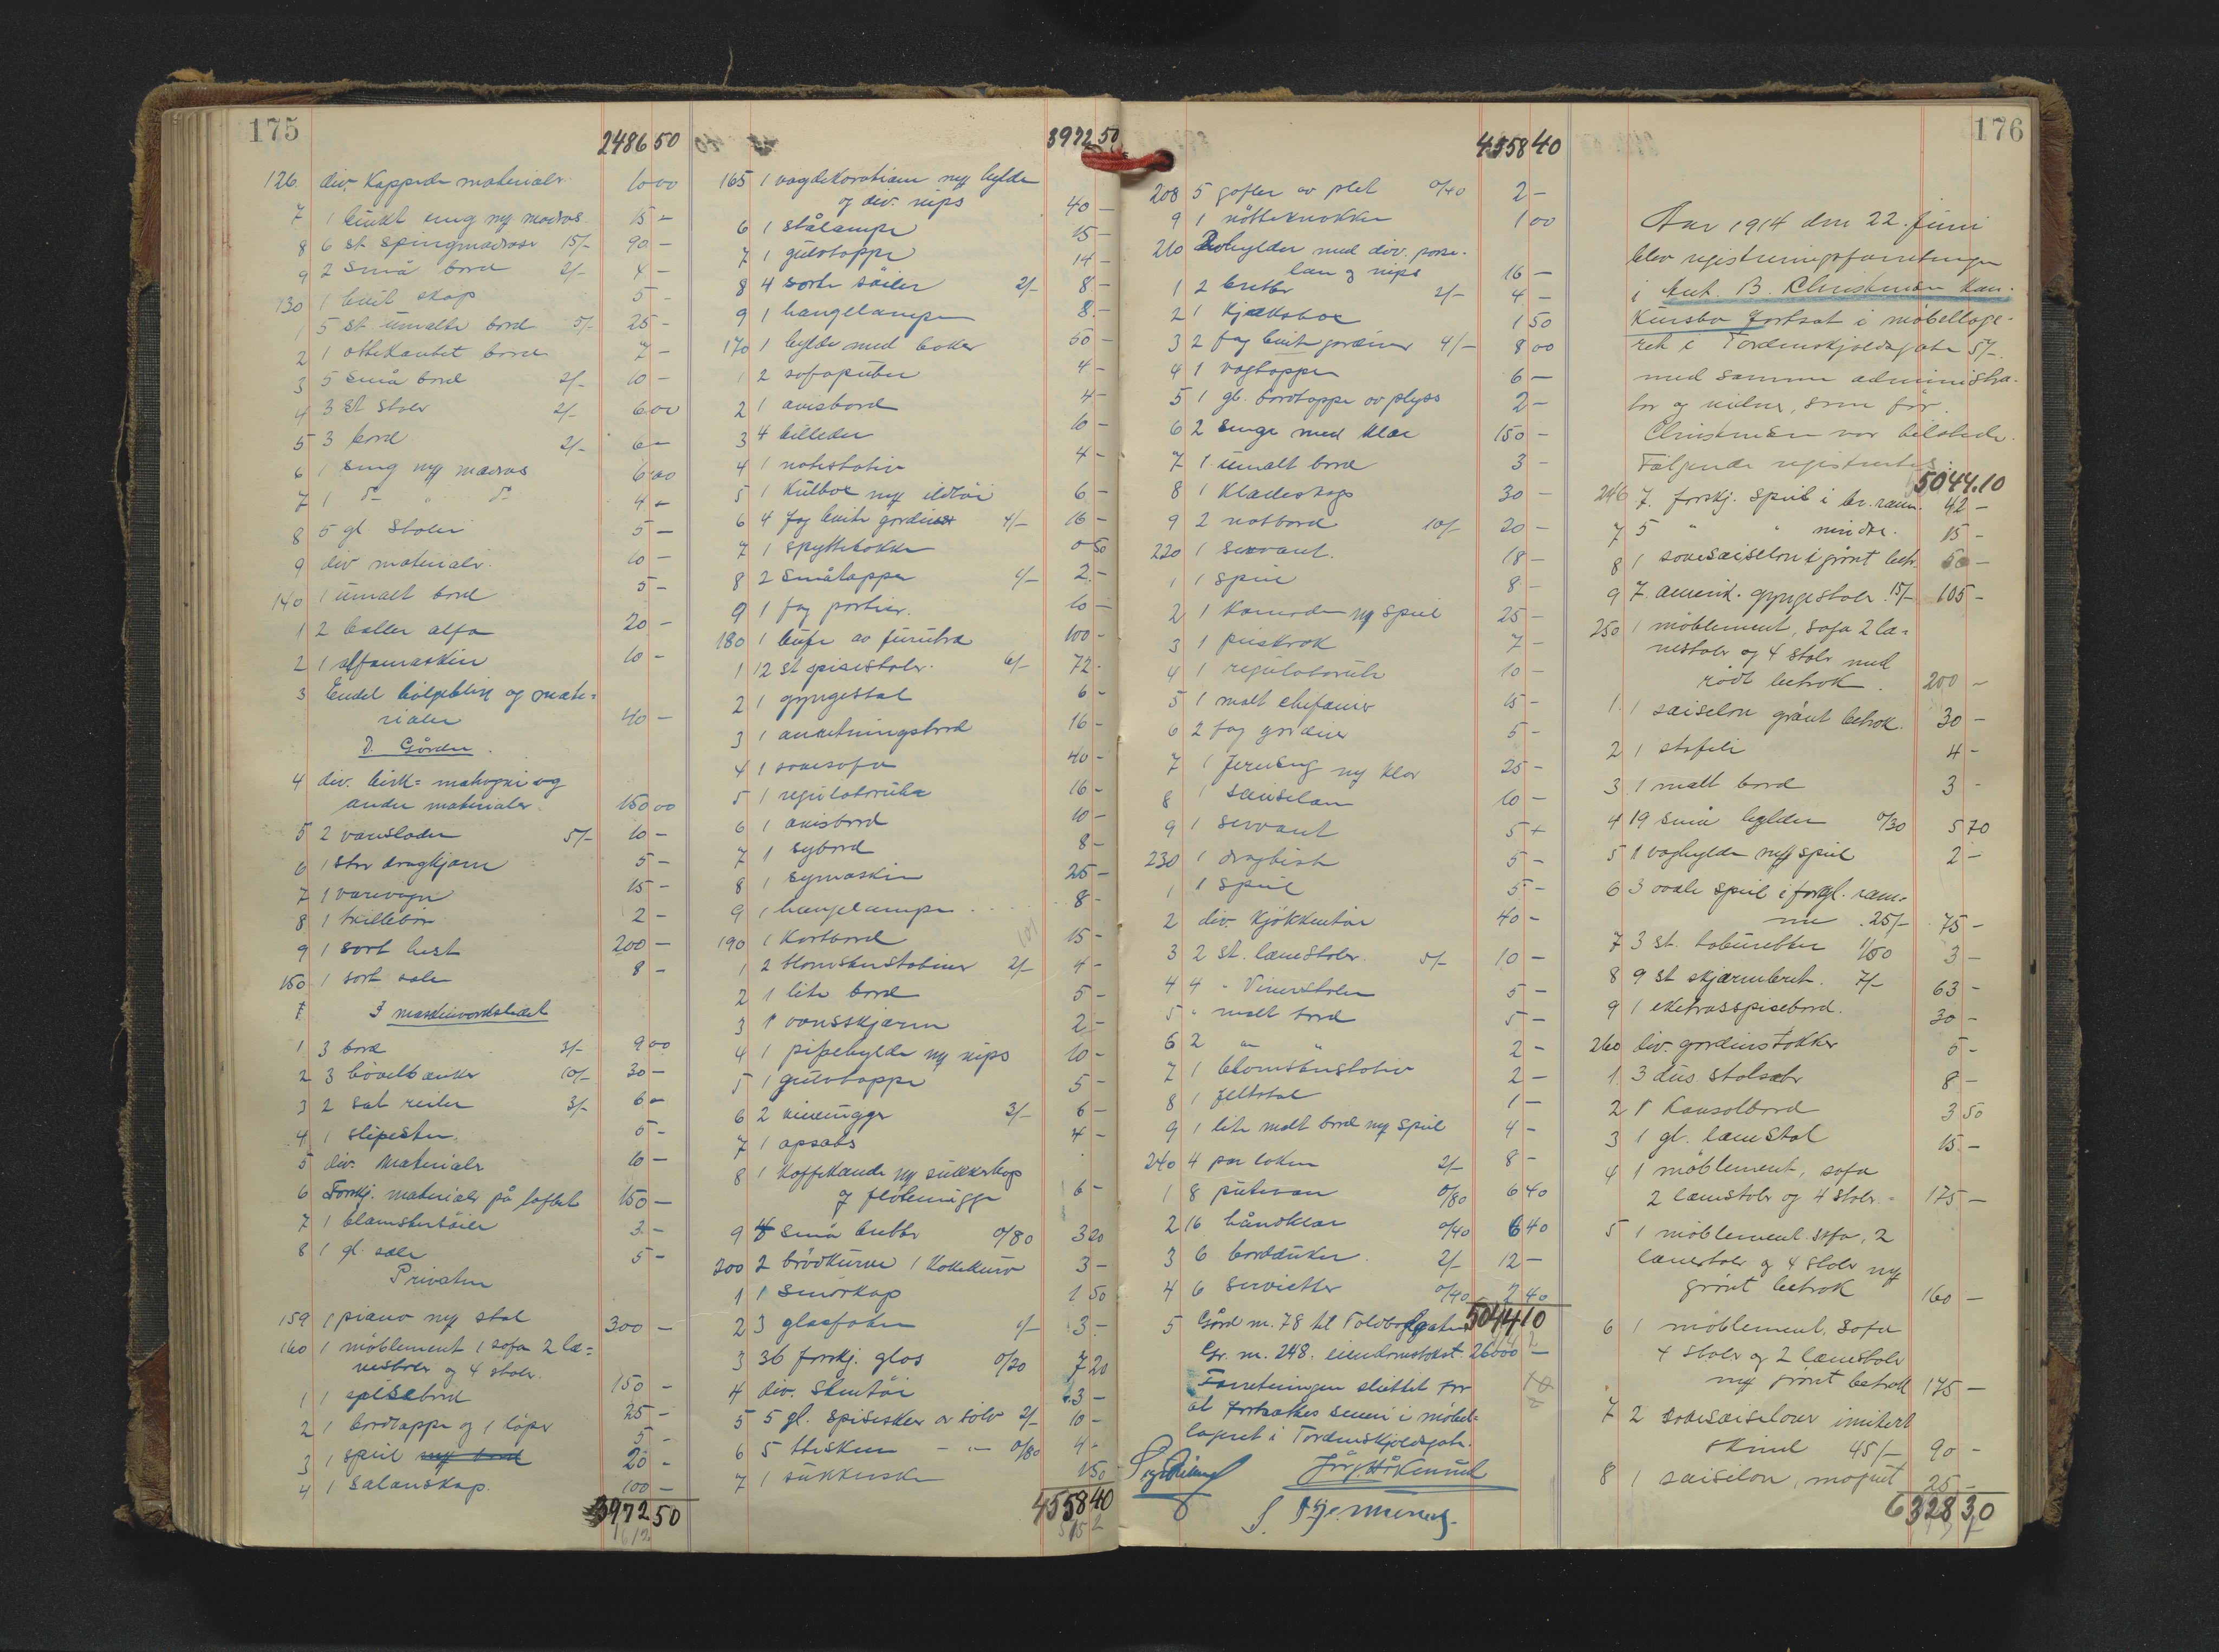 175
2486 50
126. div. Kappede materialer. 10 00
7 1 brukt seng m/ madras 15 -
8 6 st. springmadrasr 15/- 90 -
9 2 små bord 2/- 4 -
130 1 hvit skap 5 -
1 5 st. umalte bord 5/- 25 -
2 1 ottekantet bord 7 -
3 5 små bord 2/- 10 -
4 3 st stoler 2/- 6 00
5 3 bord 2/- 6 -
6 1 seng m/ madras 6 00
7 1 do " do 4 -
8 5 gl. stoler 5 -
9 div materialr. 10 -
140 1 umalt bord 5 -
1 2 baller alfa 20 -
2 1 alfamaskin 10 -
3 Endel bølgeblik og mate=
rialer 40 -
I. Gården.
4 div. birk= mahogni og
andre materialer. 150 00
5 2 vareslæder 5/- 10 -
6 1 stor dragkjærre 5 -
7 1 varevogn 15 -
8 1 trillebør 2 -
9 1 sort hest 200 -
150 1 sort sæle 8 -
I maskinverkstedet
1 3 bord 3/- 9 00
2 3 høvelbænker 10/- 30 -
3 2 sæt reiler 3/- 6 -
4 1 slipesten 5 -
5 div. Materialr 10 -
6 Forskj. materialer på loftet 150 -
7 1 blomstersøile 2 -
8 1 gl. sæle 5 -
Privaten
159 1 piano m/ stol 300 -
160 1 møblement 1 sofa 2 læ=
nestoler og 4 stoler. 150 -
1 1 spisebord 25 -
2 1 bordtæppe og 1 løper 5 -
3 1 speil m/ bord 20 -
4 1 salonskap. 100 -
3972 50
3972 50
165 1 vægdekoration m/ hylde
og div. nips 40 -
6 1 stålampe 15 -
7 1 gulvtæppe 14 -
8 4 sorte søiler 2/- 8 -
9 1 hængelampe 8 -
170 1 hylde med bøker 50 -
1 2 sofaputer 4 -
2 1 avisbord 4 -
3 4 billeder 10 -
4 1 notestativ 4 -
5 1 kulboe m/ ildtøi 6 -
6 4 fag hvite gardiner 4/- 16 -
7 1 spyttebakke 0 50
8 2 Småtæpper 1/- 2 -
9 1 fag portier. 10 -
180 1 buffe av furutræ 100 -
1 12 st spisestoler. 6/- 72 -
2 1 gyngestol 6 -
3 1 anretningsbord 16 -
4 1 sovesofa 40 -
5 1 regulatoruhr 16 -
6 1 avisbord 10 -
7 1 sybord 8 -
8 1 symaskin 25 -
9 1 hængelampe 8 -
190 1 Kortbord 15 -
1 2 blomsterstativer 2/- 4 -
2 1 lite bord 5 -
3 1 ovnsskjærm 2 -
4 1 pipehylde m/ nips 10 -
5 1 gulvtæppe 5 -
6 2 vinmugger 3/- 6 -
7 1 opsats 4 -
8 1 Kaffekande m/ sukkerkop
og fløtemugge 6 -
9 4 små bretter 0/80 3 20
200 2 brødkurve 1 kakekurv 3 -
1 1 smørkop 1 50
2 3 glasfater 1/- 3 -
3 36 forskj. glas 0/20 7 20
4 div. stentøi 3 -
5 5 gl. spiseskeer av sølv 2/- 10 -
6 5 theskeer - " - 0/80 4 -
7 1 sukkerske 1 50
4558 40
4558 40
208 5 gafler av plet 0/40 2 -
9 1 nøtteknækker 1 00
210 2 hylder med div. porse-
læn og nips 16 -
1 2 bretter 2/- 4 -
2 1 kjæksboe 1 50
3 2 fag hvite gardiner 4/- 8 00
4 1 vægtæppe 6 -
5 1 gl. bordtæppe av plyss 2 -
6 2 senge med klær 150 -
7 1 umalt bord 3 -
8 1 klædeskap 30 -
9 2 natbord 10/- 20 -
220 1 servant. 18 -
1 1 speil 8 -
2 1 Komode m/ speil 25 -
3 1 pusekrok 7 -
4 1 regulatoruhr 10 -
5 1 malt chefonier 15 -
6 2 fag gardiner 5 -
7 1 jernseng m/ klær 25 -
8 1 saiselon 10 -
9 1 servant 5 -
230 1 dragkiste 5 -
1 1 speil 5 -
2 div. kjøkkentøi 40 -
3 2 st. lænestoler. 5/- 10 -
4 4 " Vinerstoler 5 -
5 " malt bord 5 -
6 2 " " 2 -
7 1 blomsterstativ 2 -
8 1 feltstol 1 -
9 1 lite malt bord m/ speil 4 -
240 4 par laken 2/- 8 -
1 8 putevar 0/80 6 40
2 16 håndklær 0/40 6 40
3 6 bordduker. 2/- 12 -
4 6 servietter 0/40 2 40
5044 10
5 Gård nr. 78 til Toldbodgaten
Gr. nr. 248. eiendomstakst. 26000 -
Forretningen sluttet for
at fortsættes senere i møbel=
lageret i Tordenskjoldsgate.
176
Aar 1914 den 22. juni
blev registreringsforretningen
i Ant. B. Christensen Kon-
kursbo fortsat i møbellage-
ret i Tordenskjoldsgate 57.
med samme administra-
tor og vidner, som før.
Christensen var tilstede.
Følgende registrertes:
5044.10
246 7. forskj. speil i br. ram. 42 -
7 5 " " mindre. 15 -
8 1 sovesaiselon i grønt betr. 50 -
9 7. amerik. gyngestoler. 15/- 105 -
250 1 møblement, sofa 2 læ=
nestoler og 4 stoler med
rødt betrek. 200 -
1 1 saiselon grønt betrek. 30 -
2 1 stafeli 4 -
3 1 malt bord 3 -
4 19 små hylder 0/30 5 70
5 1 væghylde m/ speil 2 -
6 3 ovale speil i forgl. ram=
me 25/- 75 -
7 3 st. taburetter 1/50 3 -
8 9 st skjærmbret. 7/- 63 -
9 1 eketræsspisebord. 30 -
260 div. gardinstokker 5 -
1 3 dus stolsæter 8 -
2 1 Konsolbord 3 50
3 1 gl. lænestol 15 -
4 1 møblement, sofa
2 lænestoler og 4 stoler = 175 -
5 1 møblement sofa, 2
lænestoler og 4 stoler m/
grønt betrek 160 -
6 1 møblement, sofa
4 stoler og 2 lænestoler
m/ grønt betrek 175 -
7 2 sovesaiseloner imitert
skind 45/- 90 -
8 1 saiselon, moquet 25 -
6328 30